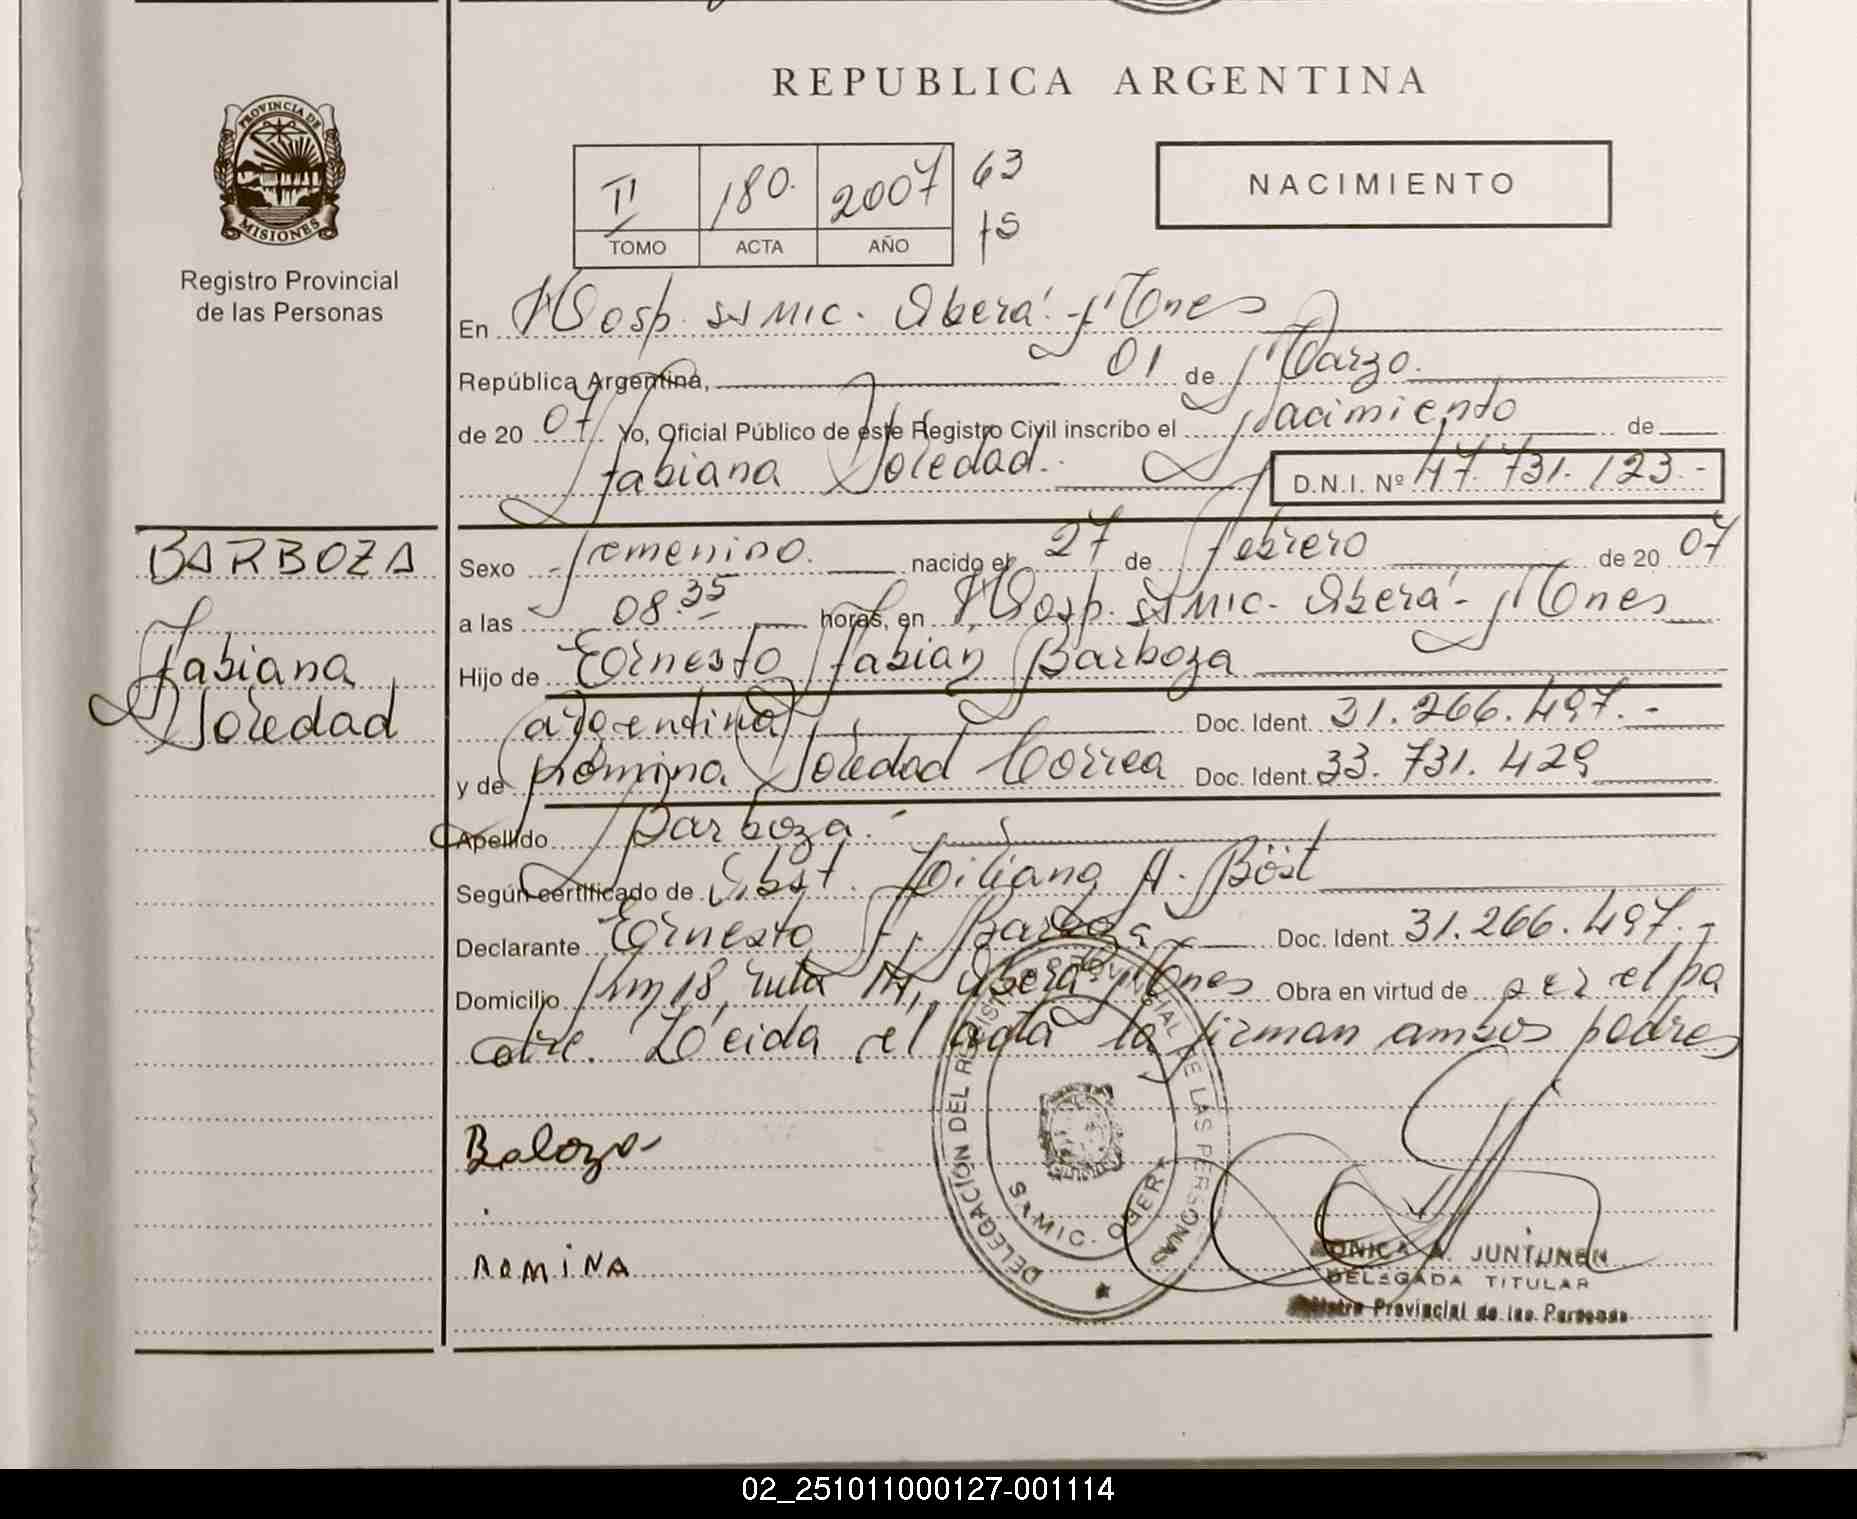 REPUBLICA ARGENTINA
PROVINCIA DE MISIONES
Registro Provincial
de las Personas
II 180. 2007 63
TOMO ACTA AÑO 15
NACIMIENTO
En Hosp. SAMIC. Oberá - Mnes
República Argentina, 01 de Marzo.
de 2007. Yo, Oficial Público de este Registro Civil inscribo el Nacimiento de
Fabiana Soledad. D.N.I. Nº 47.731.123.-
BARBOZA
Fabiana
Soledad
Sexo Femenino. nacido el 27 de Febrero de 2007
a las 08.35 horas, en Hosp. SAMIC. Oberá - Mnes
Hijo de Ernesto Fabián Barboza
argentina Doc. Ident. 31.266.497.-
y de Romina Soledad Correa Doc. Ident. 33.731.429
Apellido Barboza.-
Según certificado de Obst. Liliana A. Böst
Declarante Ernesto F. Barboza Doc. Ident. 31.266.497.-
Domicilio Km 18, ruta 14, Oberá Mnes Obra en virtud de ser el pa
dre. Leída el acta la firman ambos padres
DELEGACIÓN DEL REGISTRO PROVINCIAL DE LAS PERSONAS
SAMIC. OBERA
ROMINA
MONICA A. JUNTUNEN
DELEGADA TITULAR
Registro Provincial de las Personas
02_251011000127-001114